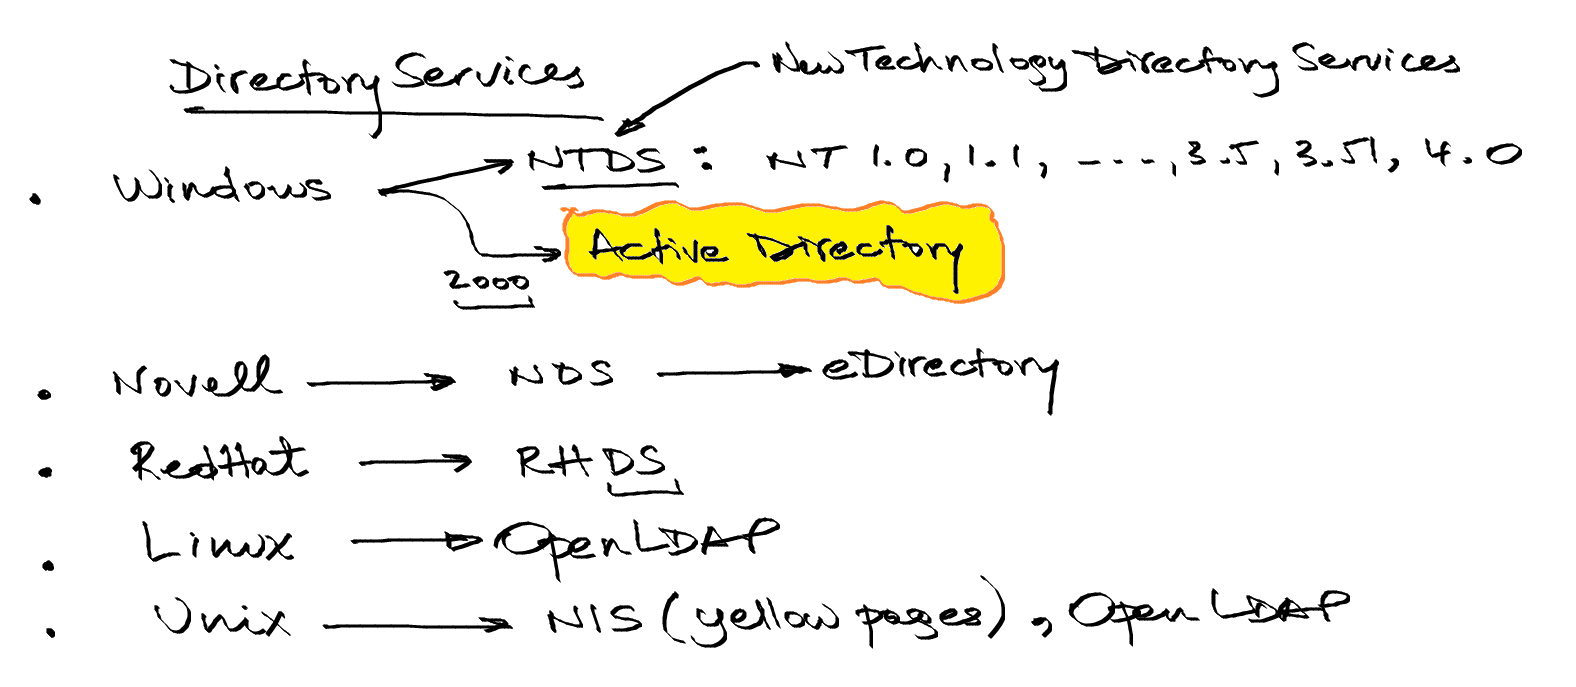 Directory Services
New Technology Directory Services
NTDS : NT 1.0, 1.1, ----, 3.5, 3.51, 4.0
. Windows
Active Directory
2000
. Novell NDS eDirectory
. RedHat RHDS
. Linux OpenLDAP
. Unix NIS (yellow pages), Open LDAP